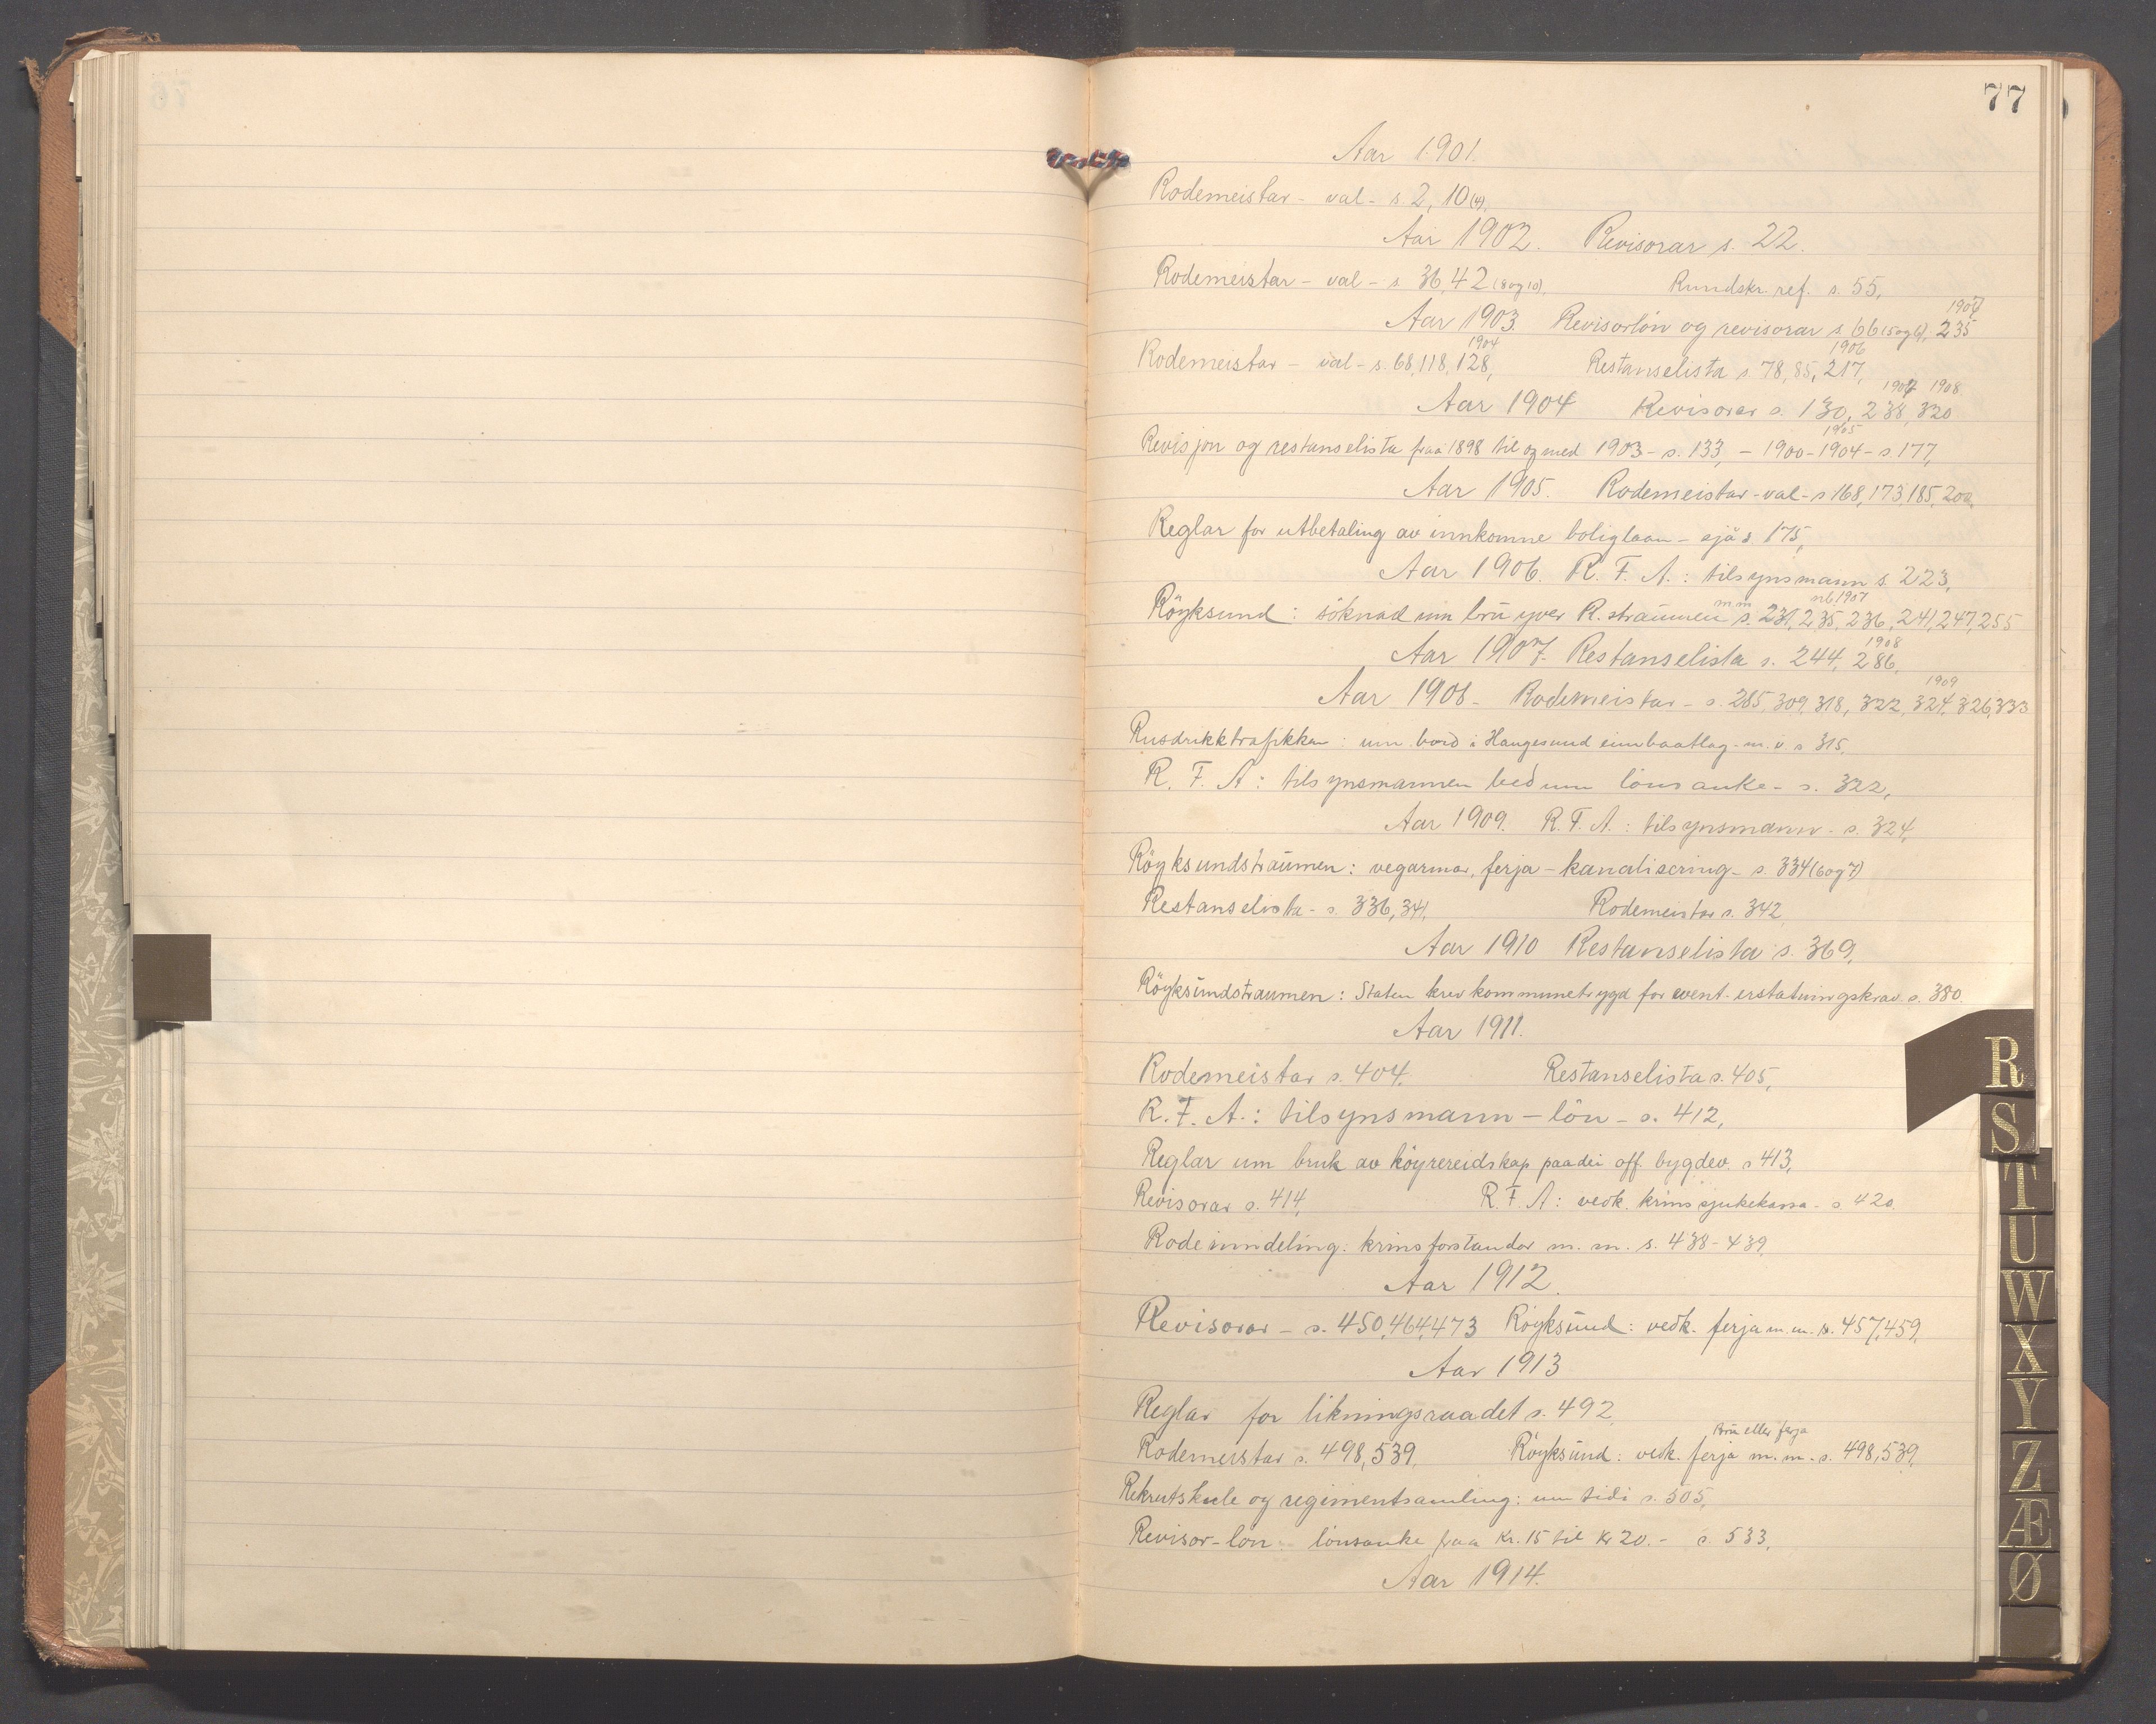 77
Aar 1901.
Rodemeistar - val - s. 2, 10(4).
Aar 1902. Revisorar s. 22.
Rodemeistar - val - s. 36, 42 (8 og 10). Rundskr. ref. s. 55,
1907
Aar 1903. Revisorlön og revisorar s. 66 (5 og 6), 235
1904 1906
Rodemeistar - val - s. 68, 118, 128, Restanselista s 78, 85, 217,
1907 1908
Aar 1904 Revisorar s. 130, 238, 320
1905
Revisjon og restanselista fraa 1898 til og med 1903 - s. 133, - 1900-1904 - s. 177,
Aar 1905. Rodemeistar - val - s 168, 173, 185, 200,
Reglar for utbetaling av innkomne boliglaan - sjå s. 175,
Aar 1906. R. F. A.: tilsynsmann s. 223,
m m 1907
Röyksund: söknad um bru yver R. straumen s. 231, 235, 236, 241, 247, 255
1908
Aar 1907. Restanselista s. 244, 286,
1909
Aar 1908 - Rodemeistar - s. 285, 309, 318, 322, 324, 326, 333
Rusdrikktrafikken: um bord i Haugesund s. 315,
R. F. A: tilsynsmannen bed um lönsauke - s. 322,
Aar 1909. R. F. A.: tilsynsmann - s. 324,
Röyksundstraumen: vegarmar, ferja - kanalisering - s. 334 (6 og 7)
Restanselista - s. 336, 341, Rodemeistar s. 342
Aar 1910 Restanselista s. 369,
Röyksundstraumen: Staten krev kommunetrygd for event. erstatningskrav s. 380.
Aar 1911.
Rodemeistar s. 404. Restanselista s. 405,
R. F. A.: tilsynsmann - lön - s. 412,
Reglar um bruk av köyrereidskap paa dei off. bygdev. s 413,
Revisorar s. 414, R. F. A: vedk. krinssjukekassa - s. 420.
Rodeinndeling: krinsforstandar m. m. s. 438 - 439,
Aar 1912.
Revisorar - s. 450, 464, 473 Röyksund: vedk. ferja m. m. s. 457, 459,
Aar 1913
Reglar for likningsraadet s. 492,
Bru eller ferja
Rodemeistar s. 498, 539, Röyksund: vedk. ferja m. m. s. 498, 539,
Rekrutskule og regimentsamling: um tidi s. 505,
Revisor-lön lönsauke fraa Kr. 15 til Kr 20. - s. 533,
Aar 1914.
R
S
T
U
W
X
Y
Z
Æ
Ø